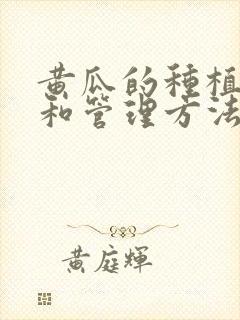 黄瓜的種植
和管理方法
黄庭輝